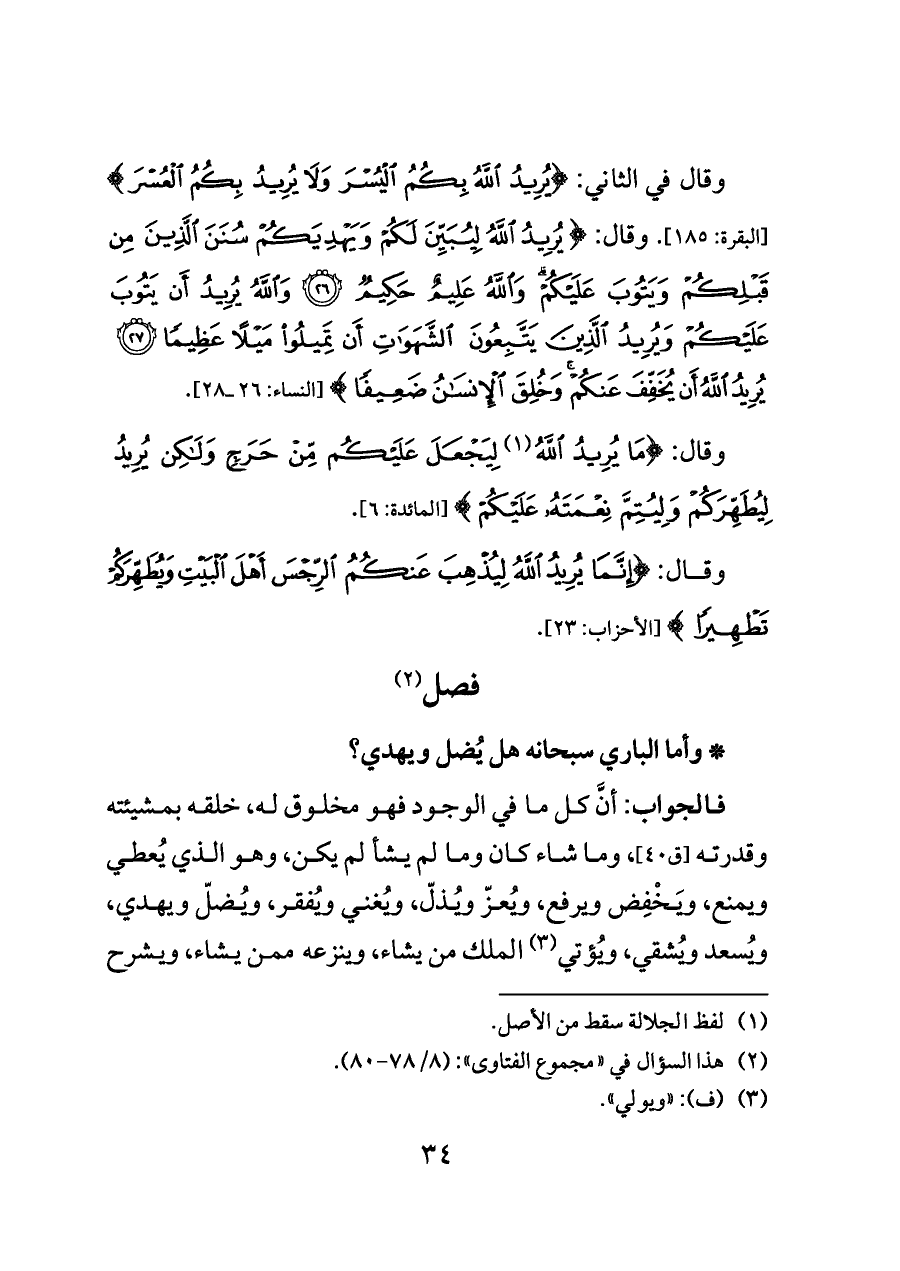 وقال في الثاني: ﴿يُرِيدُ ٱللَّهُ بِكُمُ ٱلْيُسْرَ وَلَا يُرِيدُ بِكُمُ ٱلْعُسْرَ﴾
[البقرة: ١٨٥]. وقال: ﴿يُرِيدُ ٱللَّهُ لِيُبَيِّنَ لَكُمْ وَيَهْدِيَكُمْ سُنَنَ ٱلَّذِينَ مِن
قَبْلِكُمْ وَيَتُوبَ عَلَيْكُمْ ۗ وَٱللَّهُ عَلِيمٌ حَكِيمٌ ٢٦ وَٱللَّهُ يُرِيدُ أَن يَتُوبَ
عَلَيْكُمْ وَيُرِيدُ ٱلَّذِينَ يَتَّبِعُونَ ٱلشَّهَوَٰتِ أَن تَمِيلُوا۟ مَيْلًا عَظِيمًا ٢٧
يُرِيدُ ٱللَّهُ أَن يُخَفِّفَ عَنكُمْ ۚ وَخُلِقَ ٱلْإِنسَٰنُ ضَعِيفًا ﴾ [النساء: ٢٦ـ٢٨].
وقال: ﴿مَا يُرِيدُ ٱللَّهُ(١) لِيَجْعَلَ عَلَيْكُم مِّنْ حَرَجٍ وَلَٰكِن يُرِيدُ
لِيُطَهِّرَكُمْ وَلِيُتِمَّ نِعْمَتَهُۥ عَلَيْكُمْ ﴾ [المائدة: ٦].
وقـال: ﴿إِنَّمَا يُرِيدُ ٱللَّهُ لِيُذْهِبَ عَنكُمُ ٱلرِّجْسَ أَهْلَ ٱلْبَيْتِ وَيُطَهِّرَكُمْ
تَطْهِيرًا ﴾ [الأحزاب: ٢٣].
فصل(٢)
* وأما الباري سبحانه هل يُضل ويهدي؟
فـالجواب: أنَّ كـل ما في الوجـود فهـو مخلـوق لـه، خلقـه بمـشيئته
وقدرتـه [ق٤٠]، ومـا شـاء كـان ومـا لـم يـشأ لم يكـن، وهـو الـذي يُعطـي
ويمنع، ويَـخْفِض ويرفع، ويُعـزّ ويُـذلّ، ويُغنـي ويُفقـر، ويُـضلّ ويهـدي،
ويُسعد ويُشقي، ويُؤتي(٣) الملك من يشاء، وينزعه ممـن يـشاء، ويـشرح
(١) لفظ الجلالة سقط من الأصل.
(٢) هذا السؤال في «مجموع الفتاوى»: (٨/ ٧٨-٨٠).
(٣) (ف): «ويولي».
٣٤